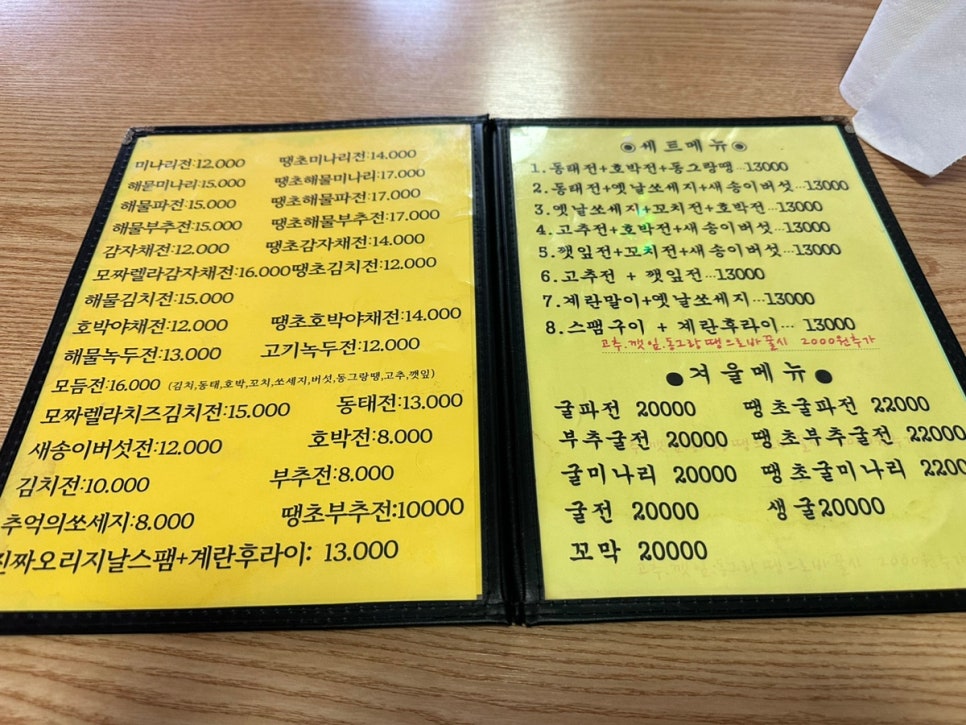 미나리전:12.000 땡초미나리전:14.000
해묻미나리:15.000 땡초해물미나리:17.000
해물파전:15.000 땡초해물파전:17.000
해물부추전:15.000 땡초해물부추전:17.000
감자채전:12.000 땡초감자채전:14.000
모짜렐라감자채전:16.000 땡초김치전:12.000
해물김치전:15.000
호박야채전:12.000 땡초호박야채전:14.000
해물녹두전:13.000 고기녹두전:12.000
모듬전:16.000 (김치,동태,호박,꼬치,쏘세지,버섯,동그랑땡,고추,깻잎)
모짜렐라치즈김치전:15.000 동태전:13.000
새송이버섯전:12.000 호박전:8.000
김치전:10.000 부추전:8.000
추억의쏘세지:8.000 땡초부추전:10000
진짜오리지날스팸+계란후라이: 13.000
세트메뉴
1.동태전+호박전+동그랑땡...13000
2.동태전+옛날쏘세지+새송이버섯...13000
3.옛날쏘세지+꼬치전+호박전...13000
4.고추전+호박전+새송이버섯...13000
5.깻잎전+꼬치전+새송이버섯...13000
6.고추전 + 깻잎전...13000
7.계란말이+옛날쏘세지...13000
8.스팸구이 + 계란후라이... 13000
고추.깻잎.동그랑땡으로바꿀시 2000원추가
겨울메뉴
굴파전 20000 땡초굴파전 22000
부추굴전 20000 땡초부추굴전 22000
굴미나리 20000 땡초굴미나리 2200
굴전 20000 생굴20000
꼬막 20000